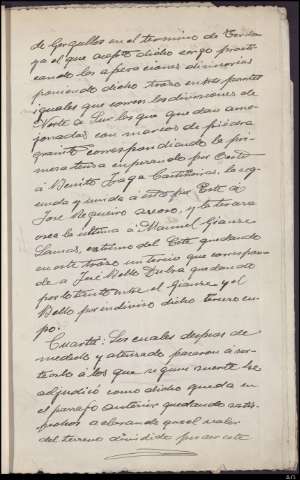 de Gorgullos en el termino de Tordo
ya el que acepto dicho cargo practi
cando las operaciones divisorias
poniendo dicho trozo en tres partes
iguales que corren las divisiones de
Norte á Sur las que quedan amo
jonadas con marcos de piedra
granito correspondiendo la pri
mera tersa empezando por Oeste
á Benito Fraga Castiñeiras, la segun
da y unida á esta por Este á
José Noguerro areoso, y la tersera
osea la ultima á Manuel Gianze
Lamas, extremo del Este quedando
en este trozo un tercio que correspon
de a José Bello Dubra quedando
por lo tanto entre el Gianze y el
Bello por indiviso dicho tercero cu
po.
Cuarta: Los cuales despues de
medido y aterrado pasaron á sor
tearlo á los que seguin suerte se
adjudicó como dicho queda en
el parrafo anterior quedando satis
fechos acordando que el valor
del terreno dividido por este